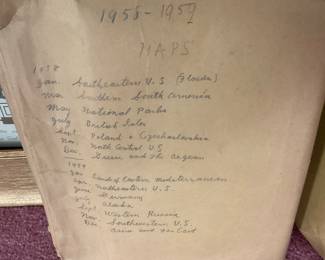 1958-1959
MAPS
1958
Jan. Southeastern U.S (Florida)
Mar. Southern South America
May National Parks
July British Isles
Sept. Poland & Czechoslovakia
Nov. North Central U.S
Dec. Greece and the Aegean
1959
Jan Lands of Eastern Mediterranean
Apr. Northeastern U.S.
June Germany
July Alaska
Sept. Western Russia
Nov. Southeastern U.S
Dec. Asia and Far East